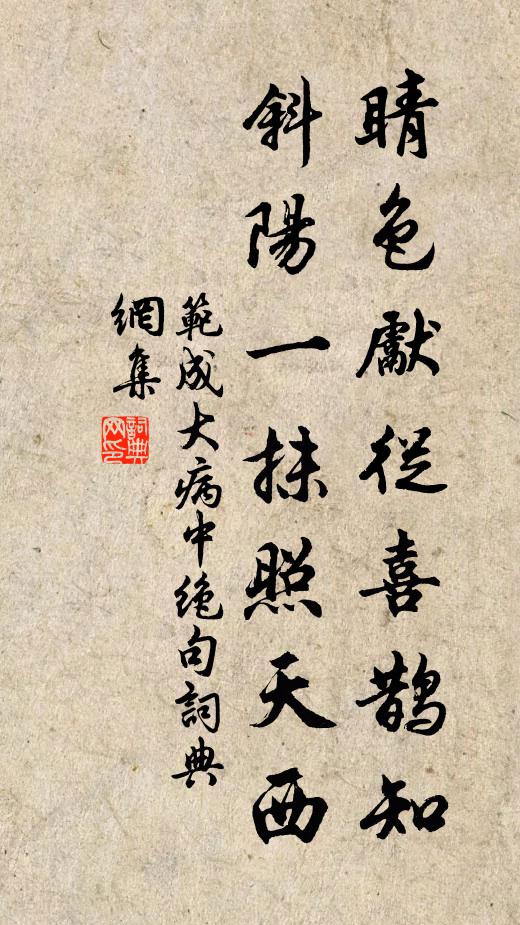 晴色獻從喜鵲知
斜陽一抹照天西
範成大病中絶句詞典
網集
詞典
网印